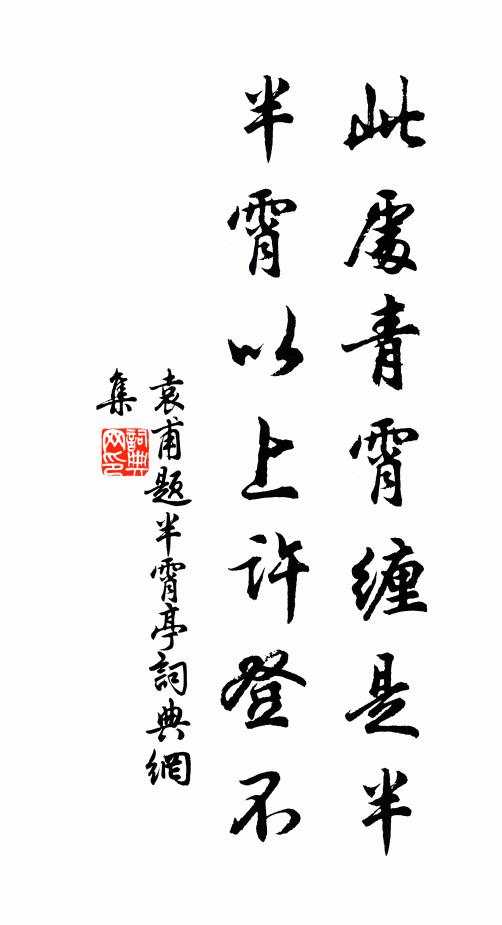 此處青霄纏是半
半霄以上許登不
袁甫題半霄亭詞典網
集
詞典网印